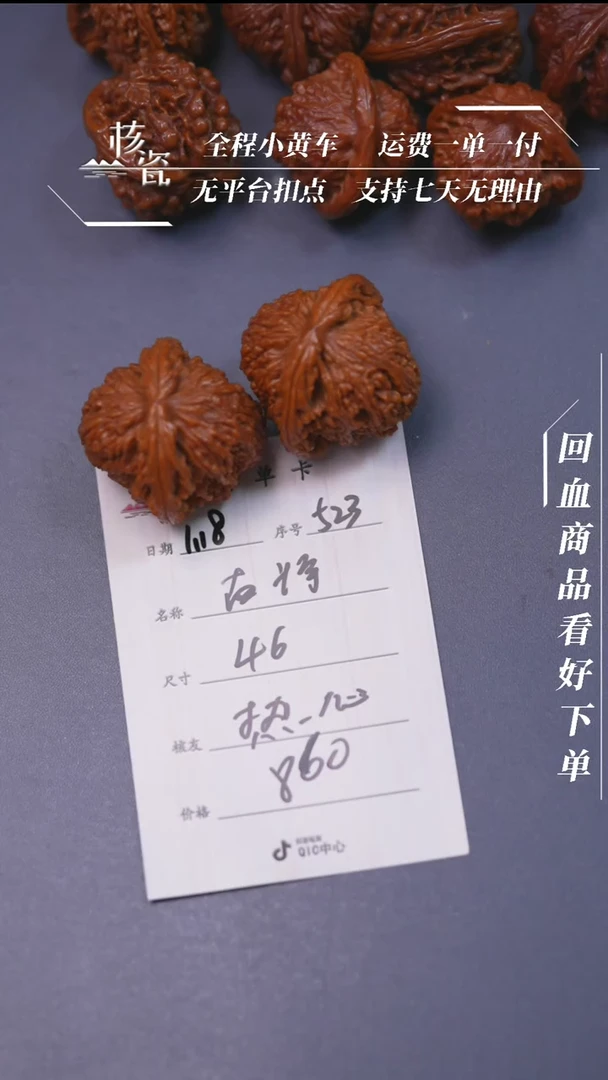 核瓷
全程小黄车 运费一单一付
无平台扣点 支持七天无理由
回血商品看好下单
单卡
日期 1,18 序号 523
名称
尺寸 46
核友 热-123
价格 860
QIC中心